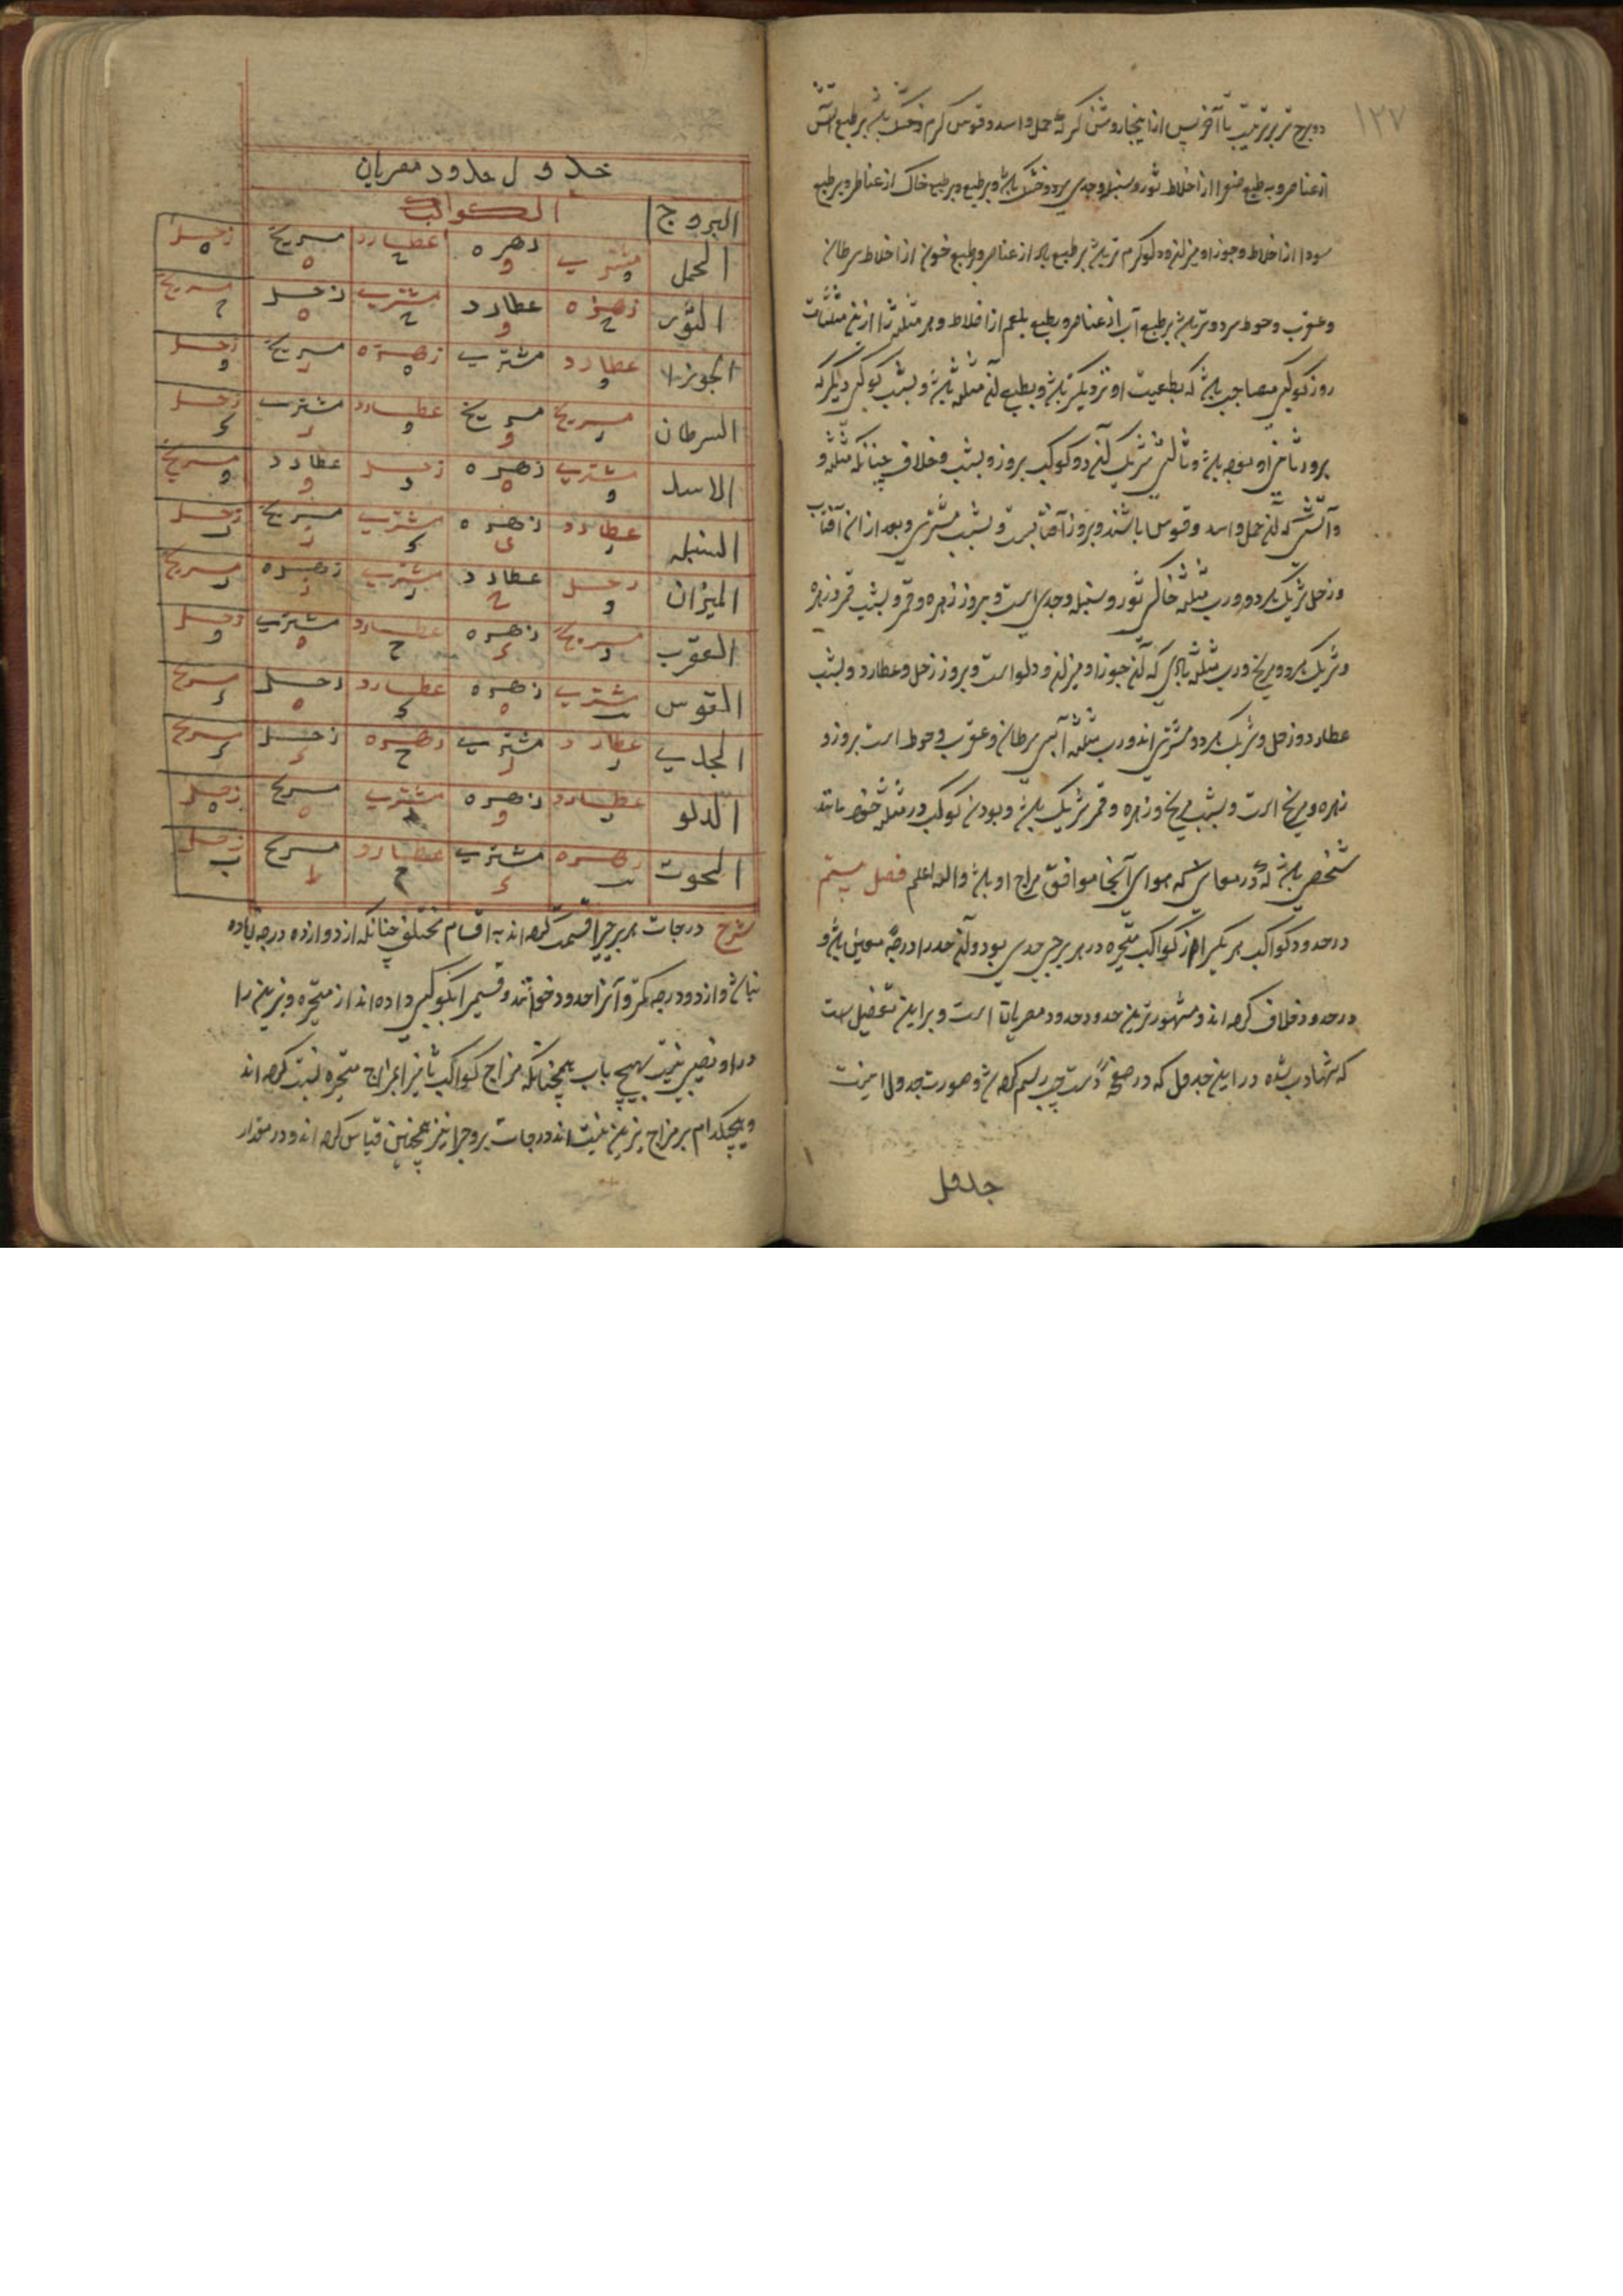 ۱۳۷
دو برج تر بر ترتیب تا آخر پس از اینجا روشن کرکه حمل و اسد و قوس کرم و خشک باشد بر طبع آتش
از عناصر و به طبع صفرا از اخلاط ثور و سنبله و جدی سرد و خشک باشد و بر طبع خاک از عناصر و بر طبع
سودا از اخلاط و جوزا و میزان و دلو کرم تر باشد بر طبع باد از عناصر و طبع خون از اخلاط سرطان
و عقرب و حوط سرد و تر باشد بر طبع آب از عناصر و بطبع بلغم از اخلاط و هر مثلثه را ازین مثلثات
روز کوکبی مصاحب باشد که بطبیعت او نزدیکتر باشد و بطبع آن مثلثه باشد و بشب کوکبی دیکر که
بروز ثانی او بوده باشد و ثالثی شریک آن دو کوکب بروز و بشب و خلاف چنانکه مثلثه
و آتشی که آن حمل و اسد و قوس باشند و بروز آفتابست و بشب مشتری و بعد از ان آفتاب
و زحل شریک هر دو و رب مثلثه خاکی ثور و سنبله و جدی است و بروز زهره و قمر و بشب قمر و زهره
و شریک هر دو مریخ و رب مثلثه بادی که آن جوزا و میزان و دلو است و بروز زحل و عطارد و بشب
عطارد و زحل و شریک هر دو مشتری اند و رب مثلثه آبی سرطان و عقرب و حوط است بروز
زهره و مریخ است و بشب مریخ و زهره و قمر شریک باشد و بودن کوکب در مثلثه خود مانند
شخصی باشد که در معاشی که هوای آنجا موافق مزاج او باشد والله اعلم فصل بیستم
در حدود کواکب هر یک را از کواکب متحیره در هر برجی حدی بود و آن حد را درجه معین باشد و
در حدود خلاف کرده اند و مشهورترین حدود حدود مصریان است و براین تفصیل است
که نهاده شده در این جدول که در صفحه دست چپ رسم کرده شد و صورت جدول اینست
جدول
جدول حدود مصریان
البروج الکواکب
الحمل مشتری و زهره و عطارد ح مریخ ه زحل ه
الثور زهره ح عطارد و مشتری ح زحل ه مریخ
الجوزا عطارد و مشتری زهره ه مریخ ز زحل و
السرطان مریخ ز مریخ و عطارد و مشتری ز زحل د
الاسد مشتری و زهره ه زحل ز عطارد و مریخ و
السنبله عطارد ز زهره ی مشتری د مریخ ز زحل
المیزان زحل و عطارد ح مشتری ز زهره ز مریخ
العقرب مریخ ز زهره د عطارد ح مشتری ه زحل و
القوس مشتری زهره ه عطارد د زحل ه مریخ د
الجدی عطارد ز مشتری ز زهره ح زحل د مریخ د
الدلو عطارد ز زهره و مشتری مریخ ه زحل ه
الحوت زهره مشتری د عطارد مریخ ط زحل ب
شرح درجات هر برجرا قسمت کرده اند به اقسام مختلف چنانکه از دوازده درجه زیاده
نباشد و از دو درجه کمتر و آنرا حدود خوانند و قسمی را بکوکبی داده اند از متحیره و نیرین را
در او نصیبی نیست بهیچ باب همچنانکه مزاج کواکب ثابته را بمزاج متحیره نسبت کرده اند
و هیچکدام بر مزاج نیرین نیست اند درجات بروج را نیز همچنین قیاس کرده اند و در مقدار